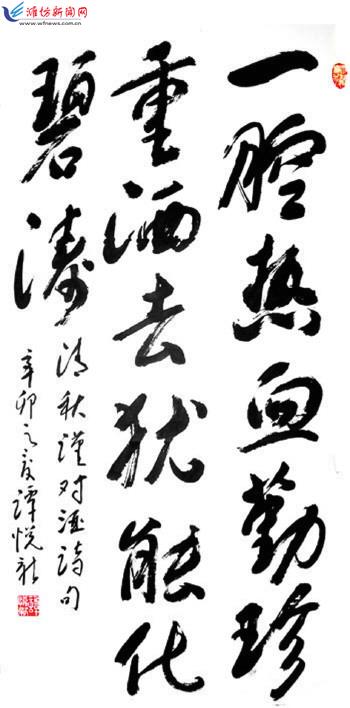 潍坊新闻网
www.wfnews.com.cn
一腔热血勤珍
重洒去犹能化
碧涛
清秋瑾对酒诗句
辛卯之夏谭悦新